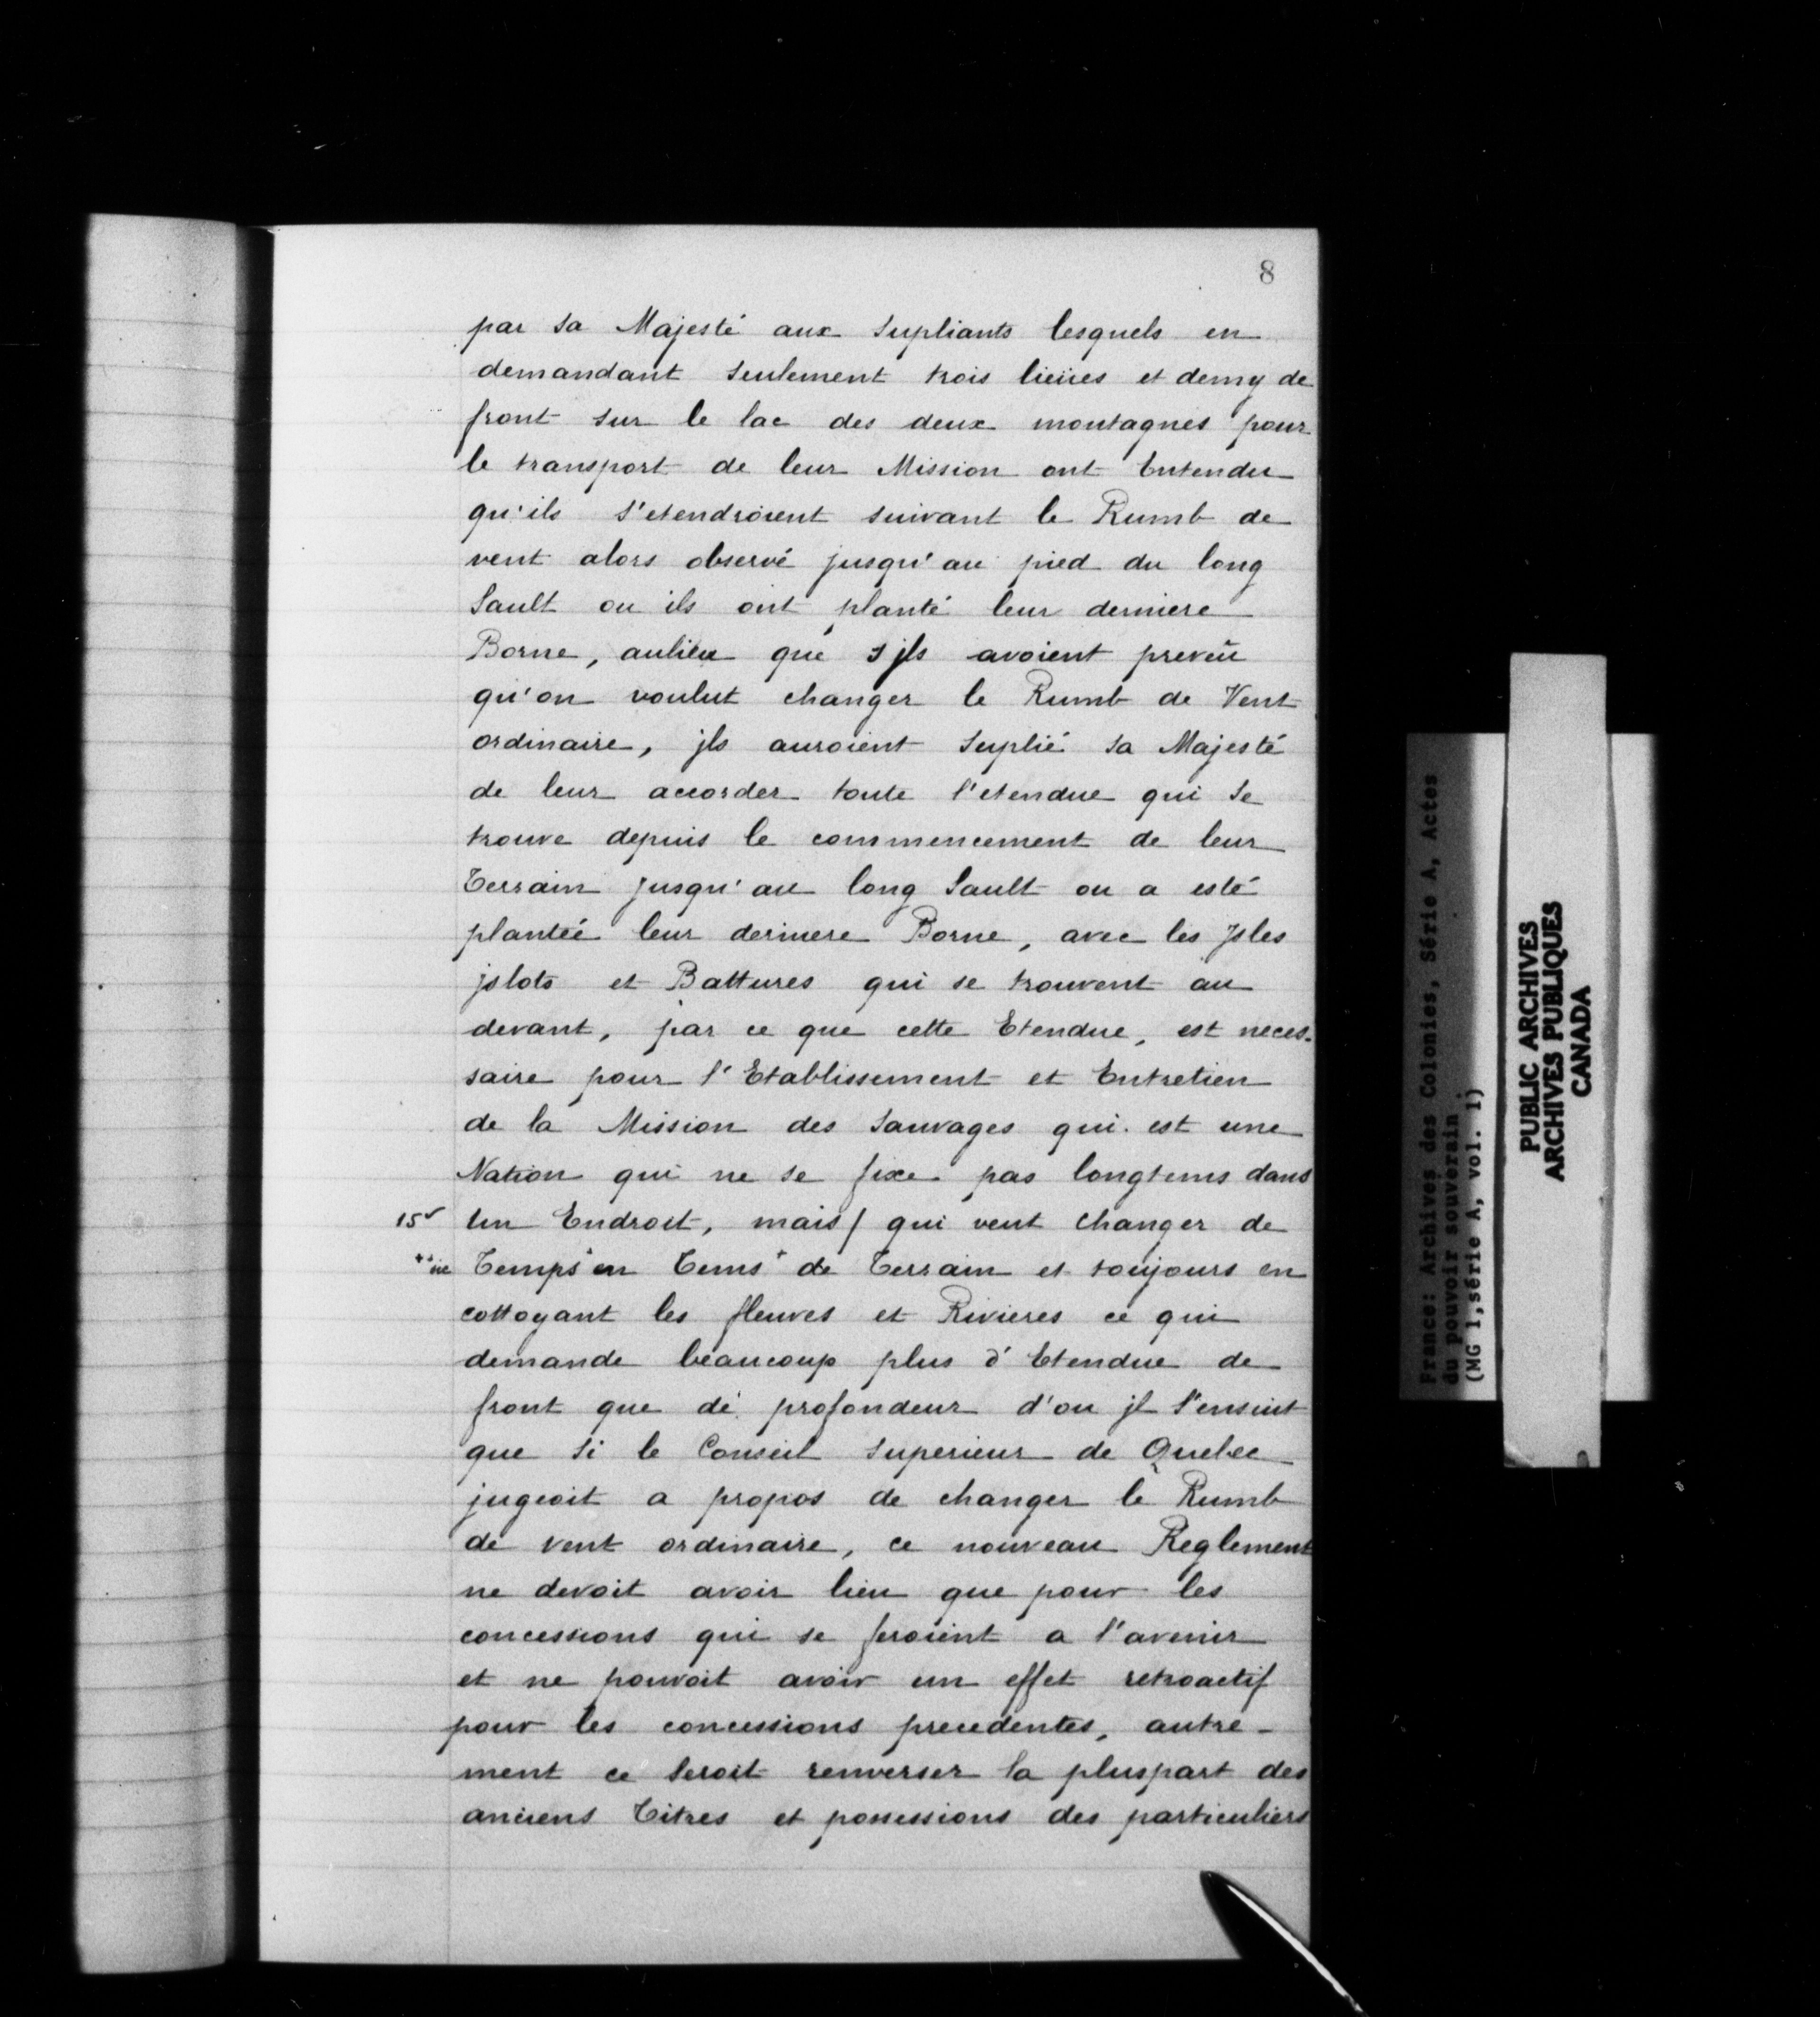 8
par sa Majesté aux supliants lesquels en
demandant seulement trois lieües et demy de
front sur le lac des deux montagnes pour
le transport de leur Mission ont Entendu
qu'ils s'etendroient suivant le Rumb de
vent alors observé jusqu'au pied du long
Sault ou ils ont planté leur derniere
Borne, aulieu que s jls avoient preveü
qu'on voulut changer le Rumb de Vent
ordinaire, jls auroient suplié sa Majesté
de leur accorder toute l'etendue qui se
trouve depuis le commencement de leur
Terrain jusqu'au long Sault ou a esté
plantée leur derniere Borne, avec les Jsles
jslots et Battures qui se trouvent au
devant, par ce que cette Etendue, est neces-
saire pour l'Etablissement et Entretien
de la Mission des Sauvages qui est une
Nation qui ne se fixe pas longtems dans
15v Un Endroit, mais/ qui veut changer de
Temps en Tems de Terrain et toujours en
cottoyant les fleuves et Rivieres ce qui
demande beaucoup plus d'Etendue de
front que de profondeur d'ou jl s'ensuit
que si le Conseil superieur de Quebec
jugeoit a propos de changer le Rumb
de vent ordinaire, ce nouveau Reglement
ne devoit avoir lieu que pour les
concessions qui se feroient a l'avenir
et ne pouvoit avoir un effet retroactif
pour les concessions precedentes, autre-
ment ce seroit renverser la pluspart des
anciens Titres et possessions des particuliers
France: Archives des Colonies, Série A, Actes
du pouvoir souverain
(MG 1,série A, vol. 1)
PUBLIC ARCHIVES
ARCHIVES PUBLIQUES
CANADA